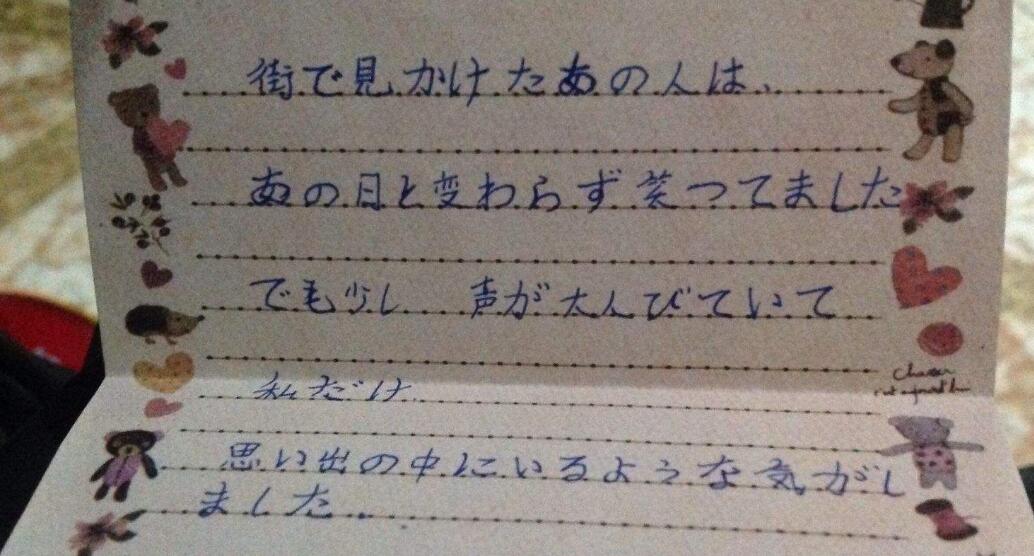 街で見かけたあの人は、
あの日と変わらず笑ってました
でも少し 声が大人びていて
私だけ
思い出の中にいるような気がし
ました.